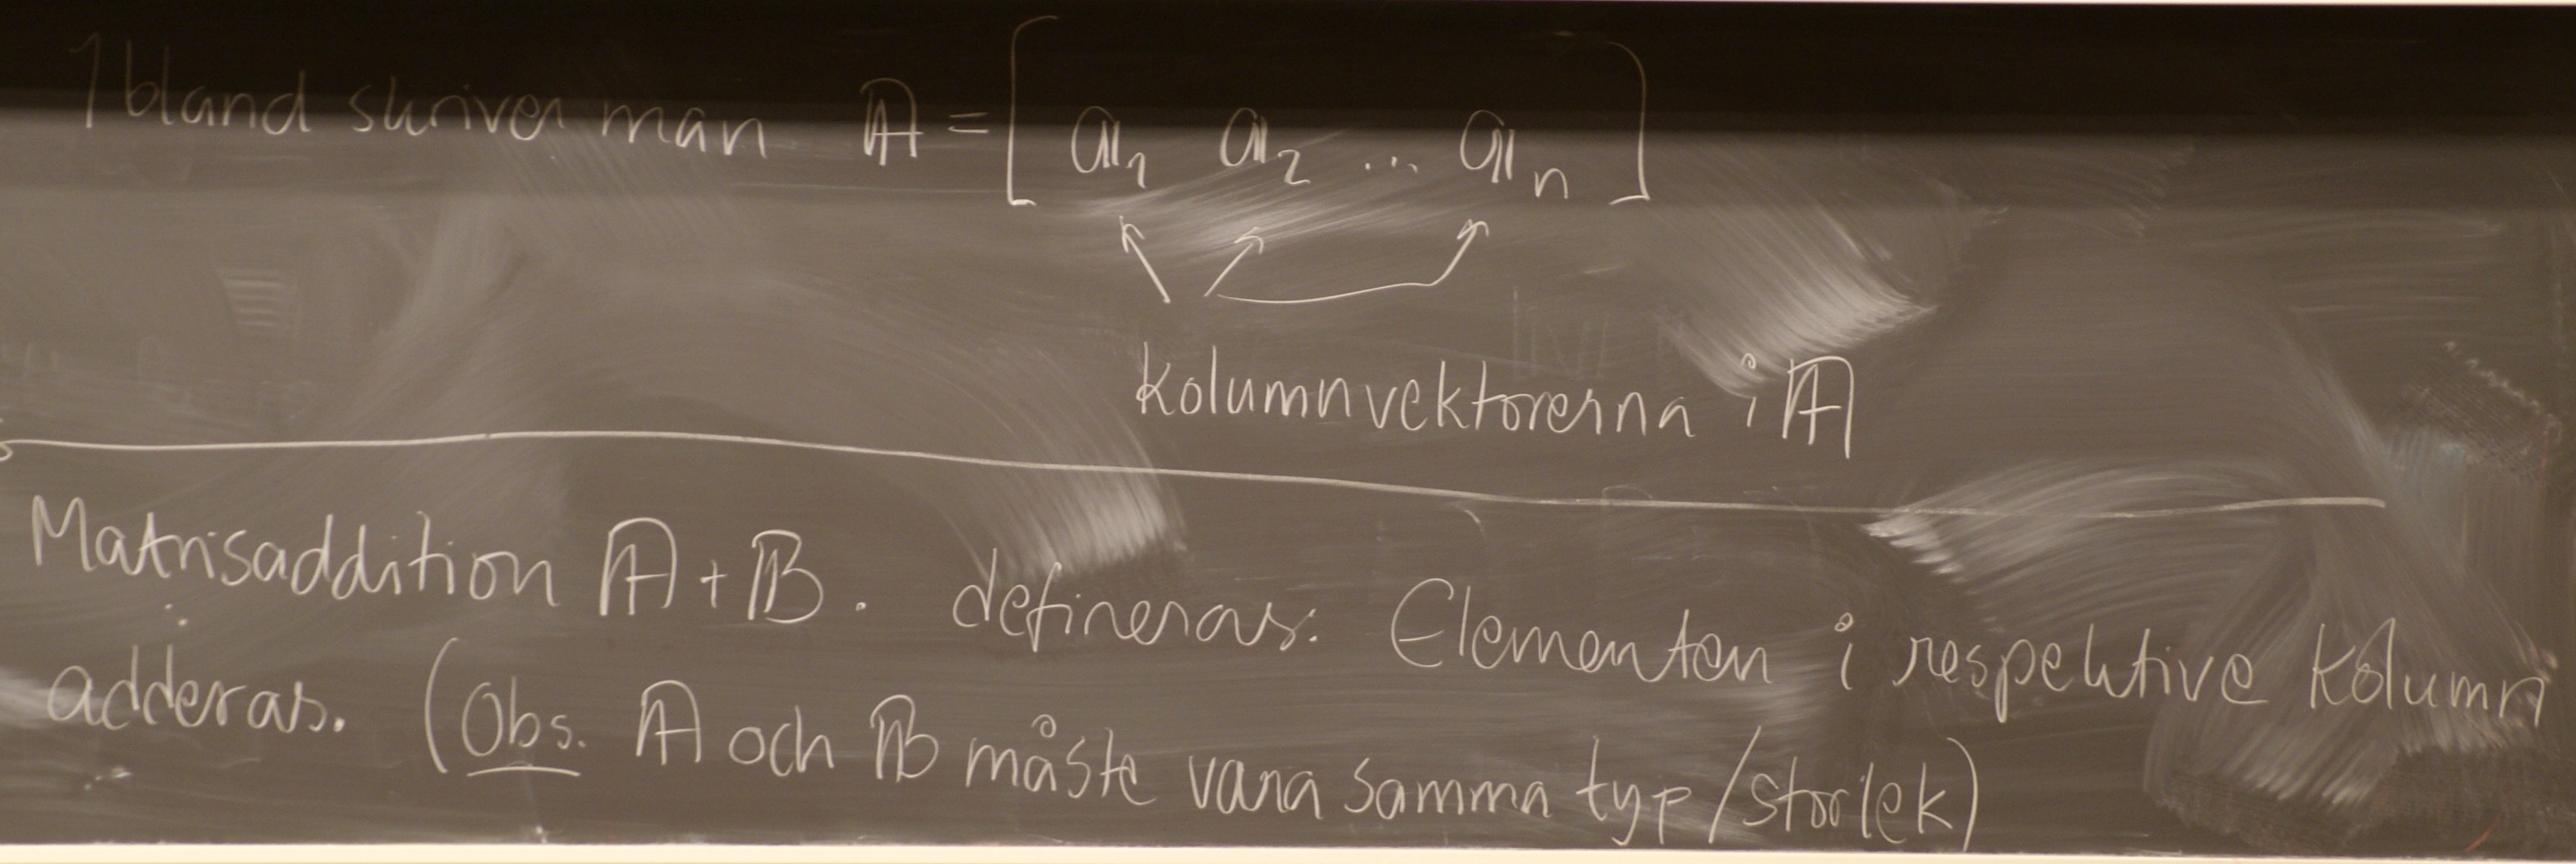 Ibland skriver man 𝔸 = [ 𝕒₁ 𝕒₂ ... 𝕒ₙ ]
kolumnvektorerna i 𝔸
Matrisaddition 𝔸 + 𝔹. defineras: Elementen i respektive kolumn
adderas. (Obs. 𝔸 och 𝔹 måste vara samma typ/storlek)